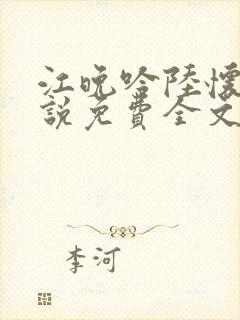 江晚吟陸懷
說免費全文
李河